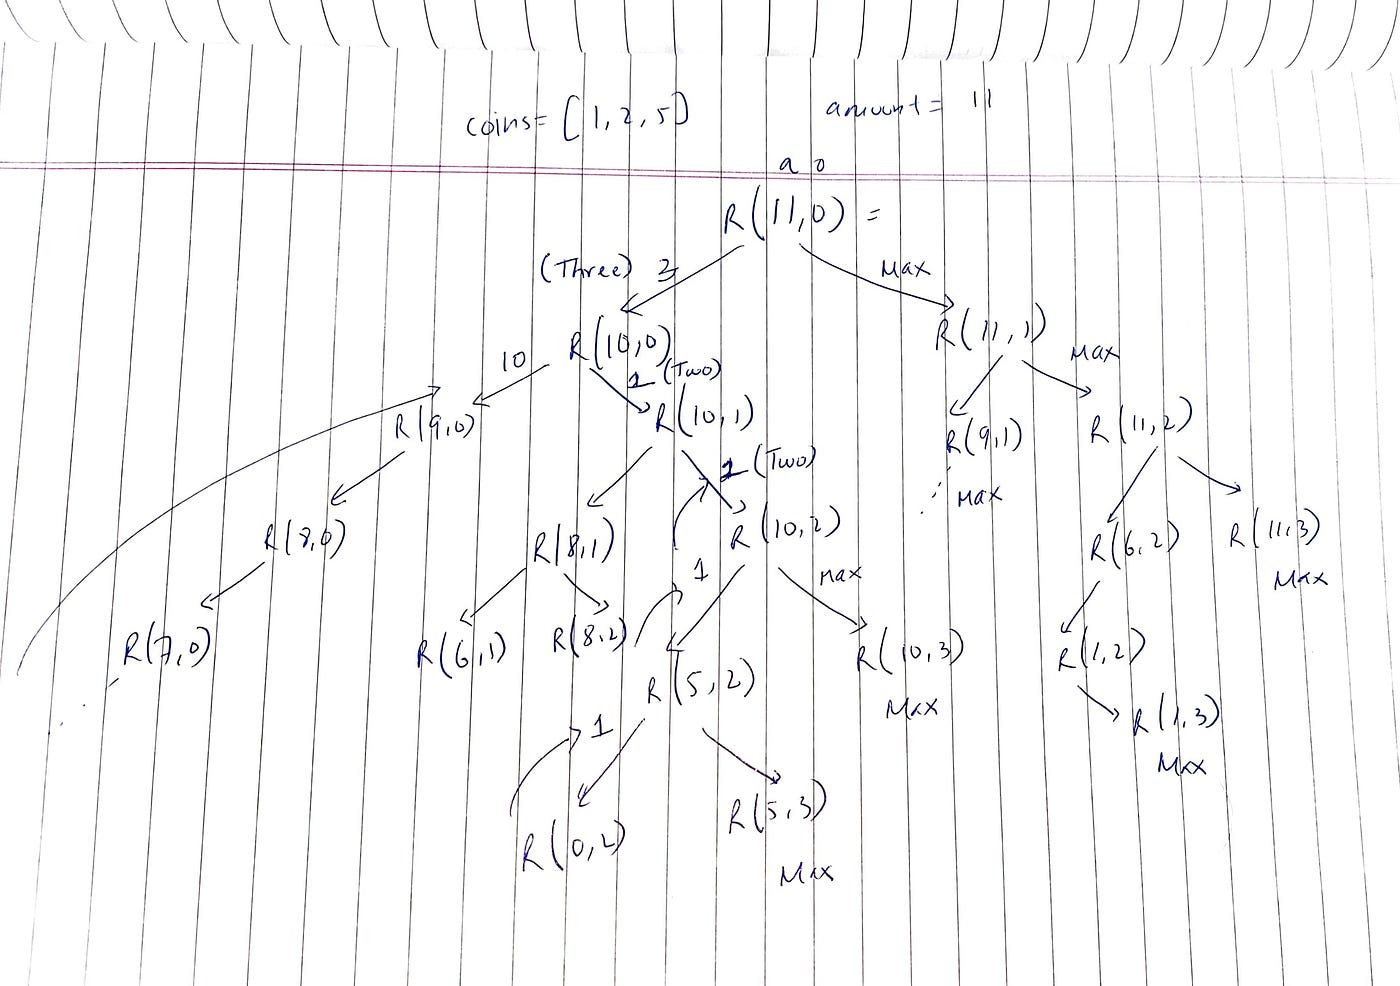 coins= [1,2,5] amount = 11
a 0
R(11,0) =
(Three) 3 Max
R(10,0) R(11,1)
10 2 (Two) Max
R(9,0) R(10,1) R(9,1) R(11,2)
2 (Two) Max
R(8,0) R(8,1) R(10,2) R(6,2) R(11,3)
1 Max Max
R(7,0) R(6,1) R(8,2) R(10,3) R(1,2)
R(5,2) Max R(1,3)
1 Max
R(0,2) R(5,3)
Max